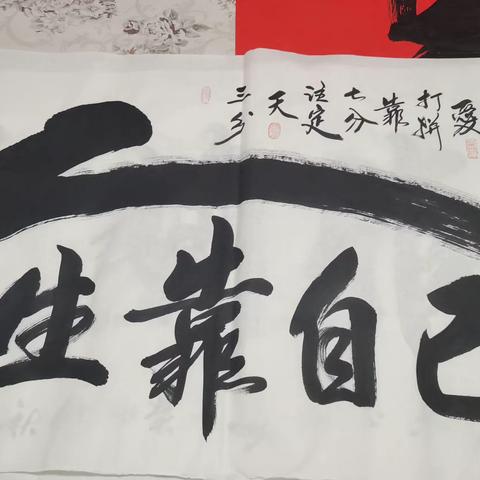 三分天註定七分靠打拼愛
人生靠自己